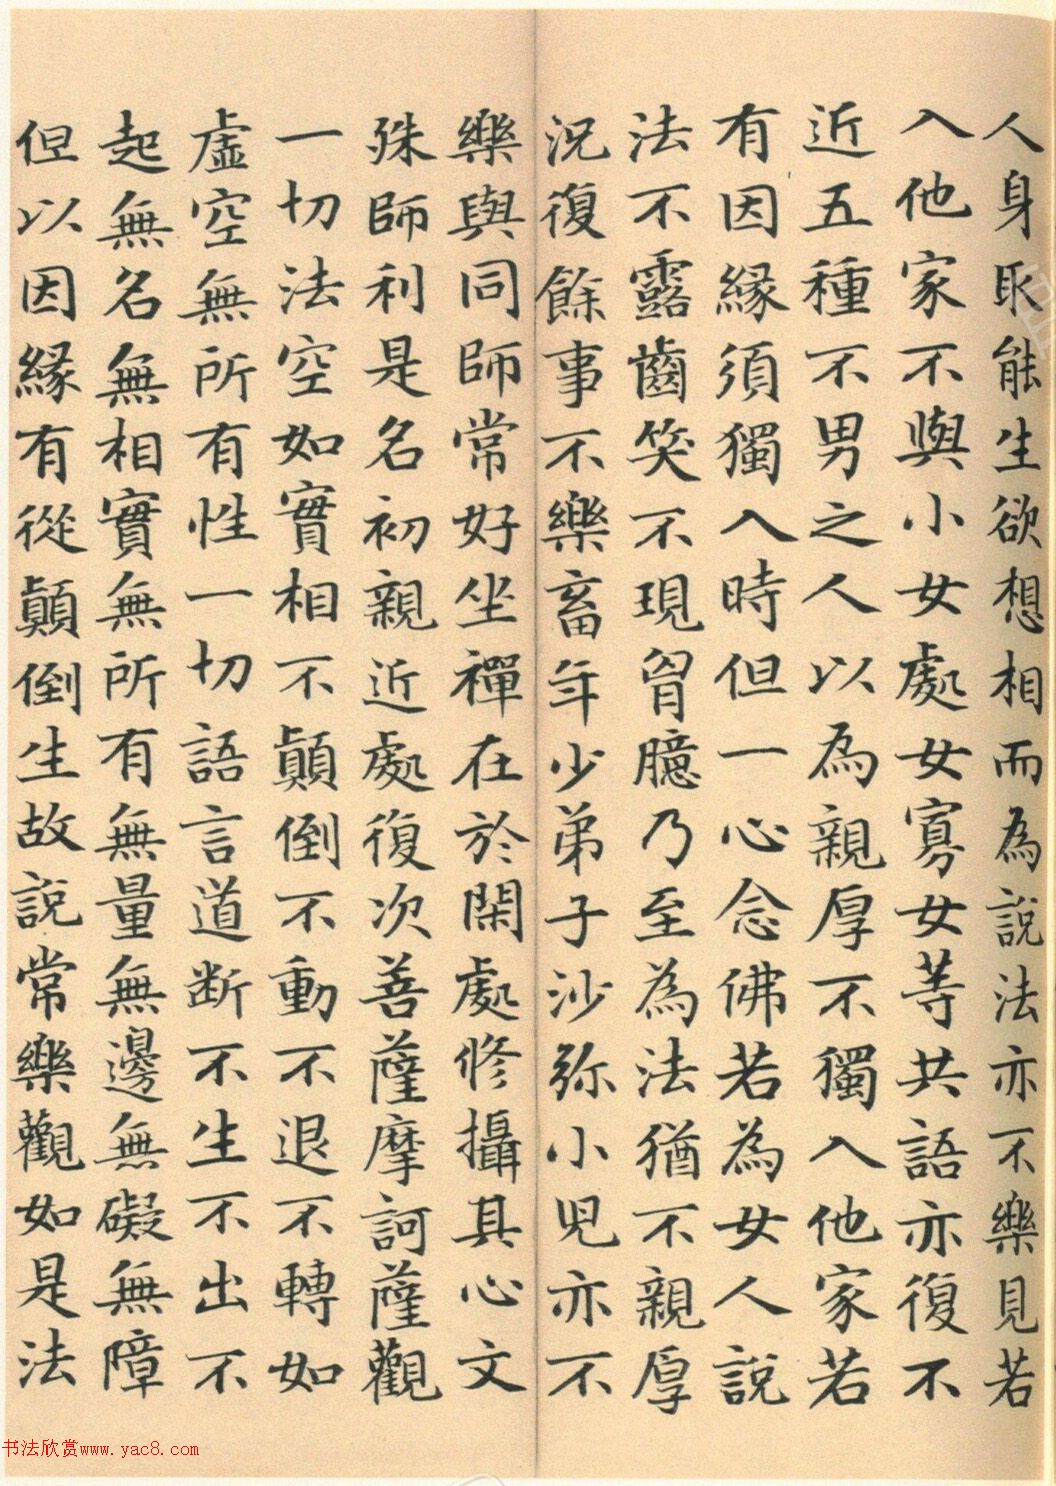 人身取能生欲想相而為說法亦不樂見若
入他家不與小女處女寡女等共語亦復不
近五種不男之人以為親厚不獨入他家若
有因緣須獨入時但一心念佛若為女人說
法不露齒笑不現胷臆乃至為法猶不親厚
況復餘事不樂畜年少弟子沙弥小兒亦不
樂與同師常好坐禪在於閑處修攝其心文
殊師利是名初親近處復次善薩摩訶薩觀
一切法空如實相不顛倒不動不退不轉如
虛空無所有性一切語言道断不生不出不
起無名無相實無所有無量無邊無礙無障
但以因緣有從顛倒生故說常樂觀如是法
书法欣赏www.yac8.com